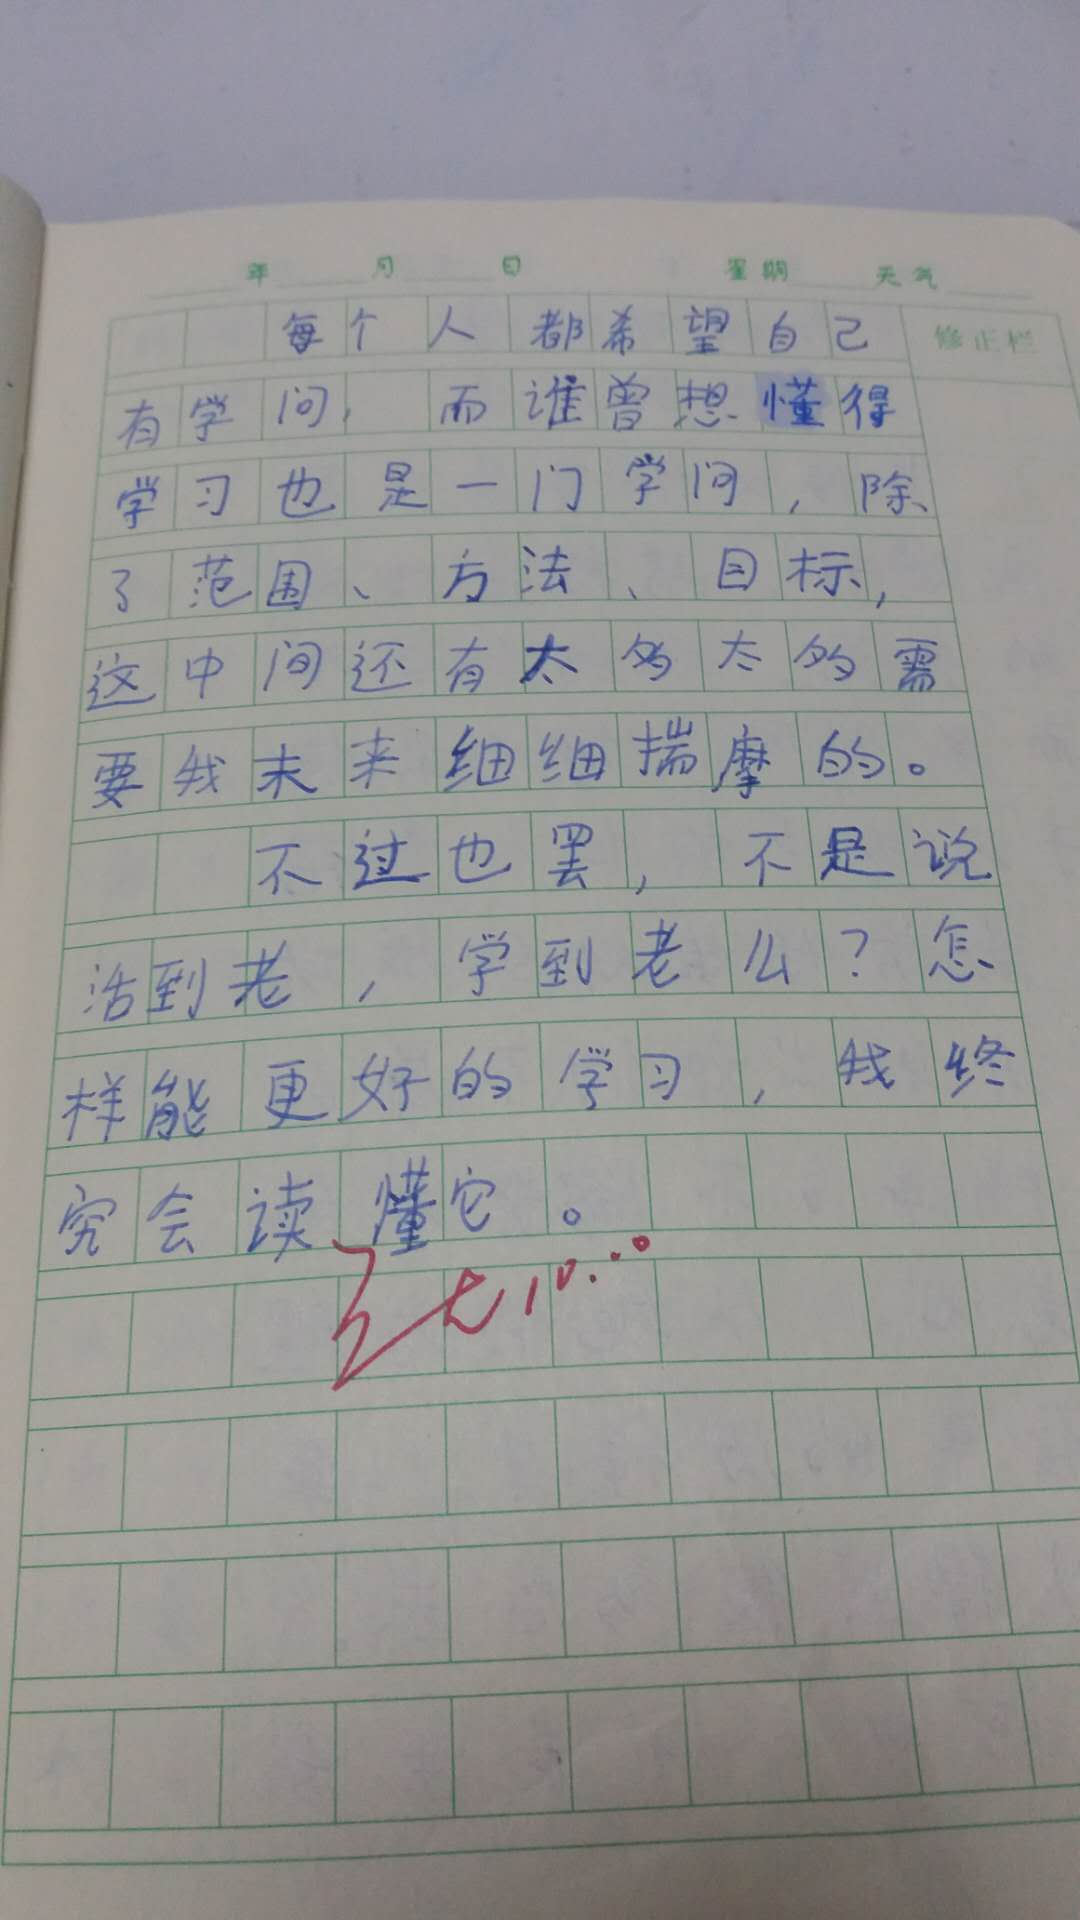 年 月 日 星期 天气
修正栏
每个人都希望自己
有学问，而谁曾想懂得
学习也是一门学问，除
了范围、方法、目标，
这中间还有太多太多需
要我未来细细揣摩的。
不过也罢，不是说
活到老，学到老么？怎
样能更好的学习，我终
究会读懂它。